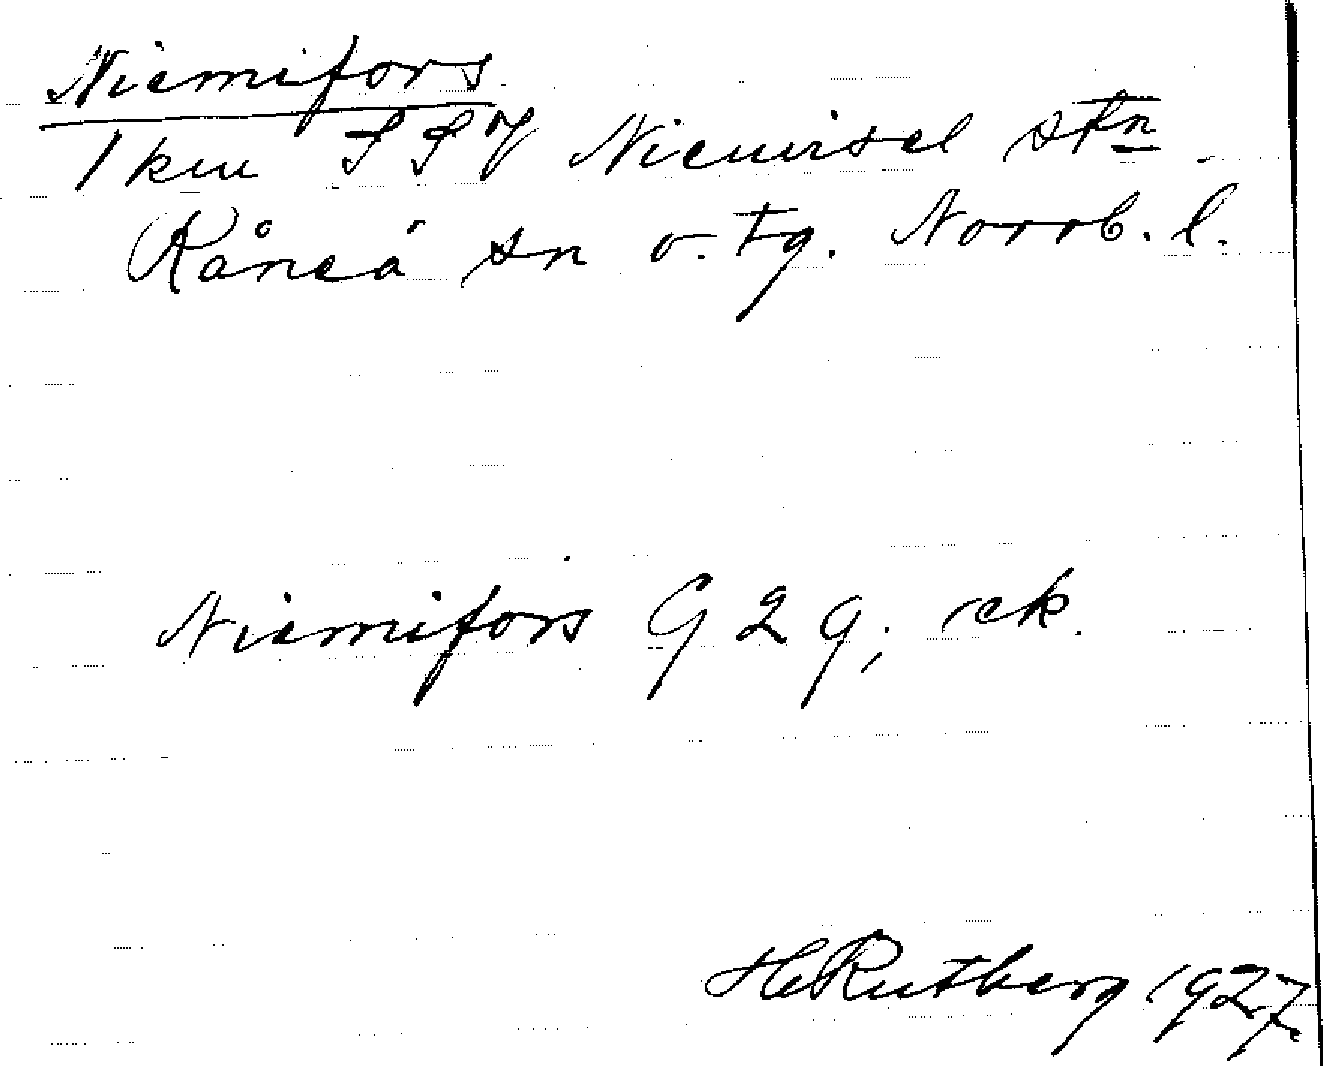 Niemifors.
1 km SSV Niemisel stn
Råneå sn o. tg. Norrb. l.
Niemifors G 2 g; rek.
H Rutberg 1927